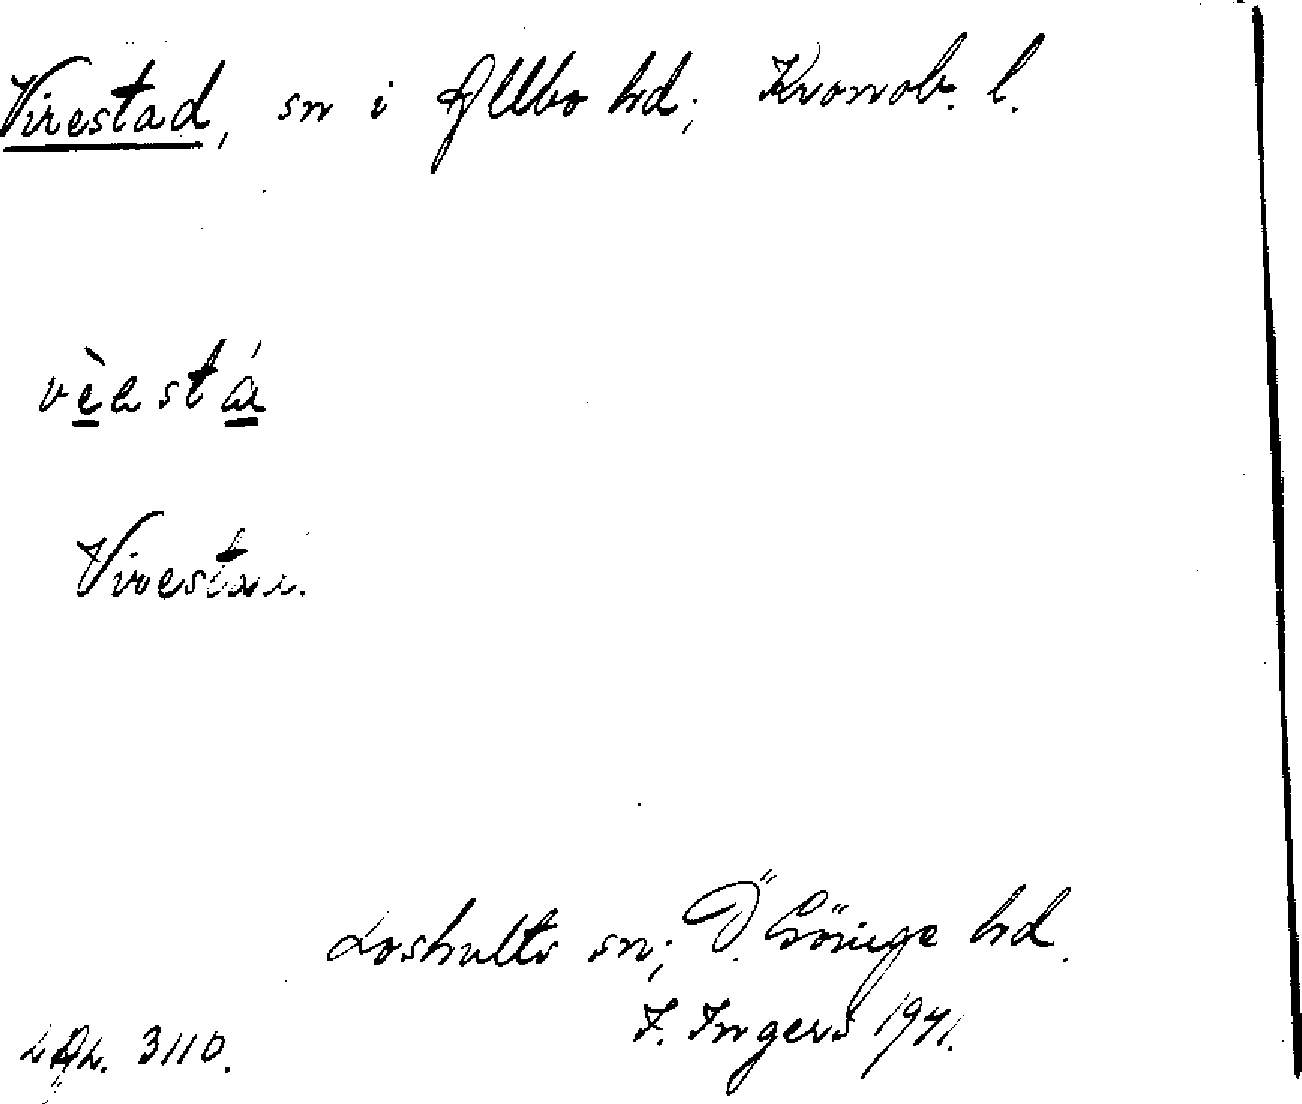 Virestad, sn i Allbo hd; Kronob. l.
vèestá
Virestad.
Loshults sn; Ö. Göinge hd.
I. Ingers 1941.
LAL. 3110.